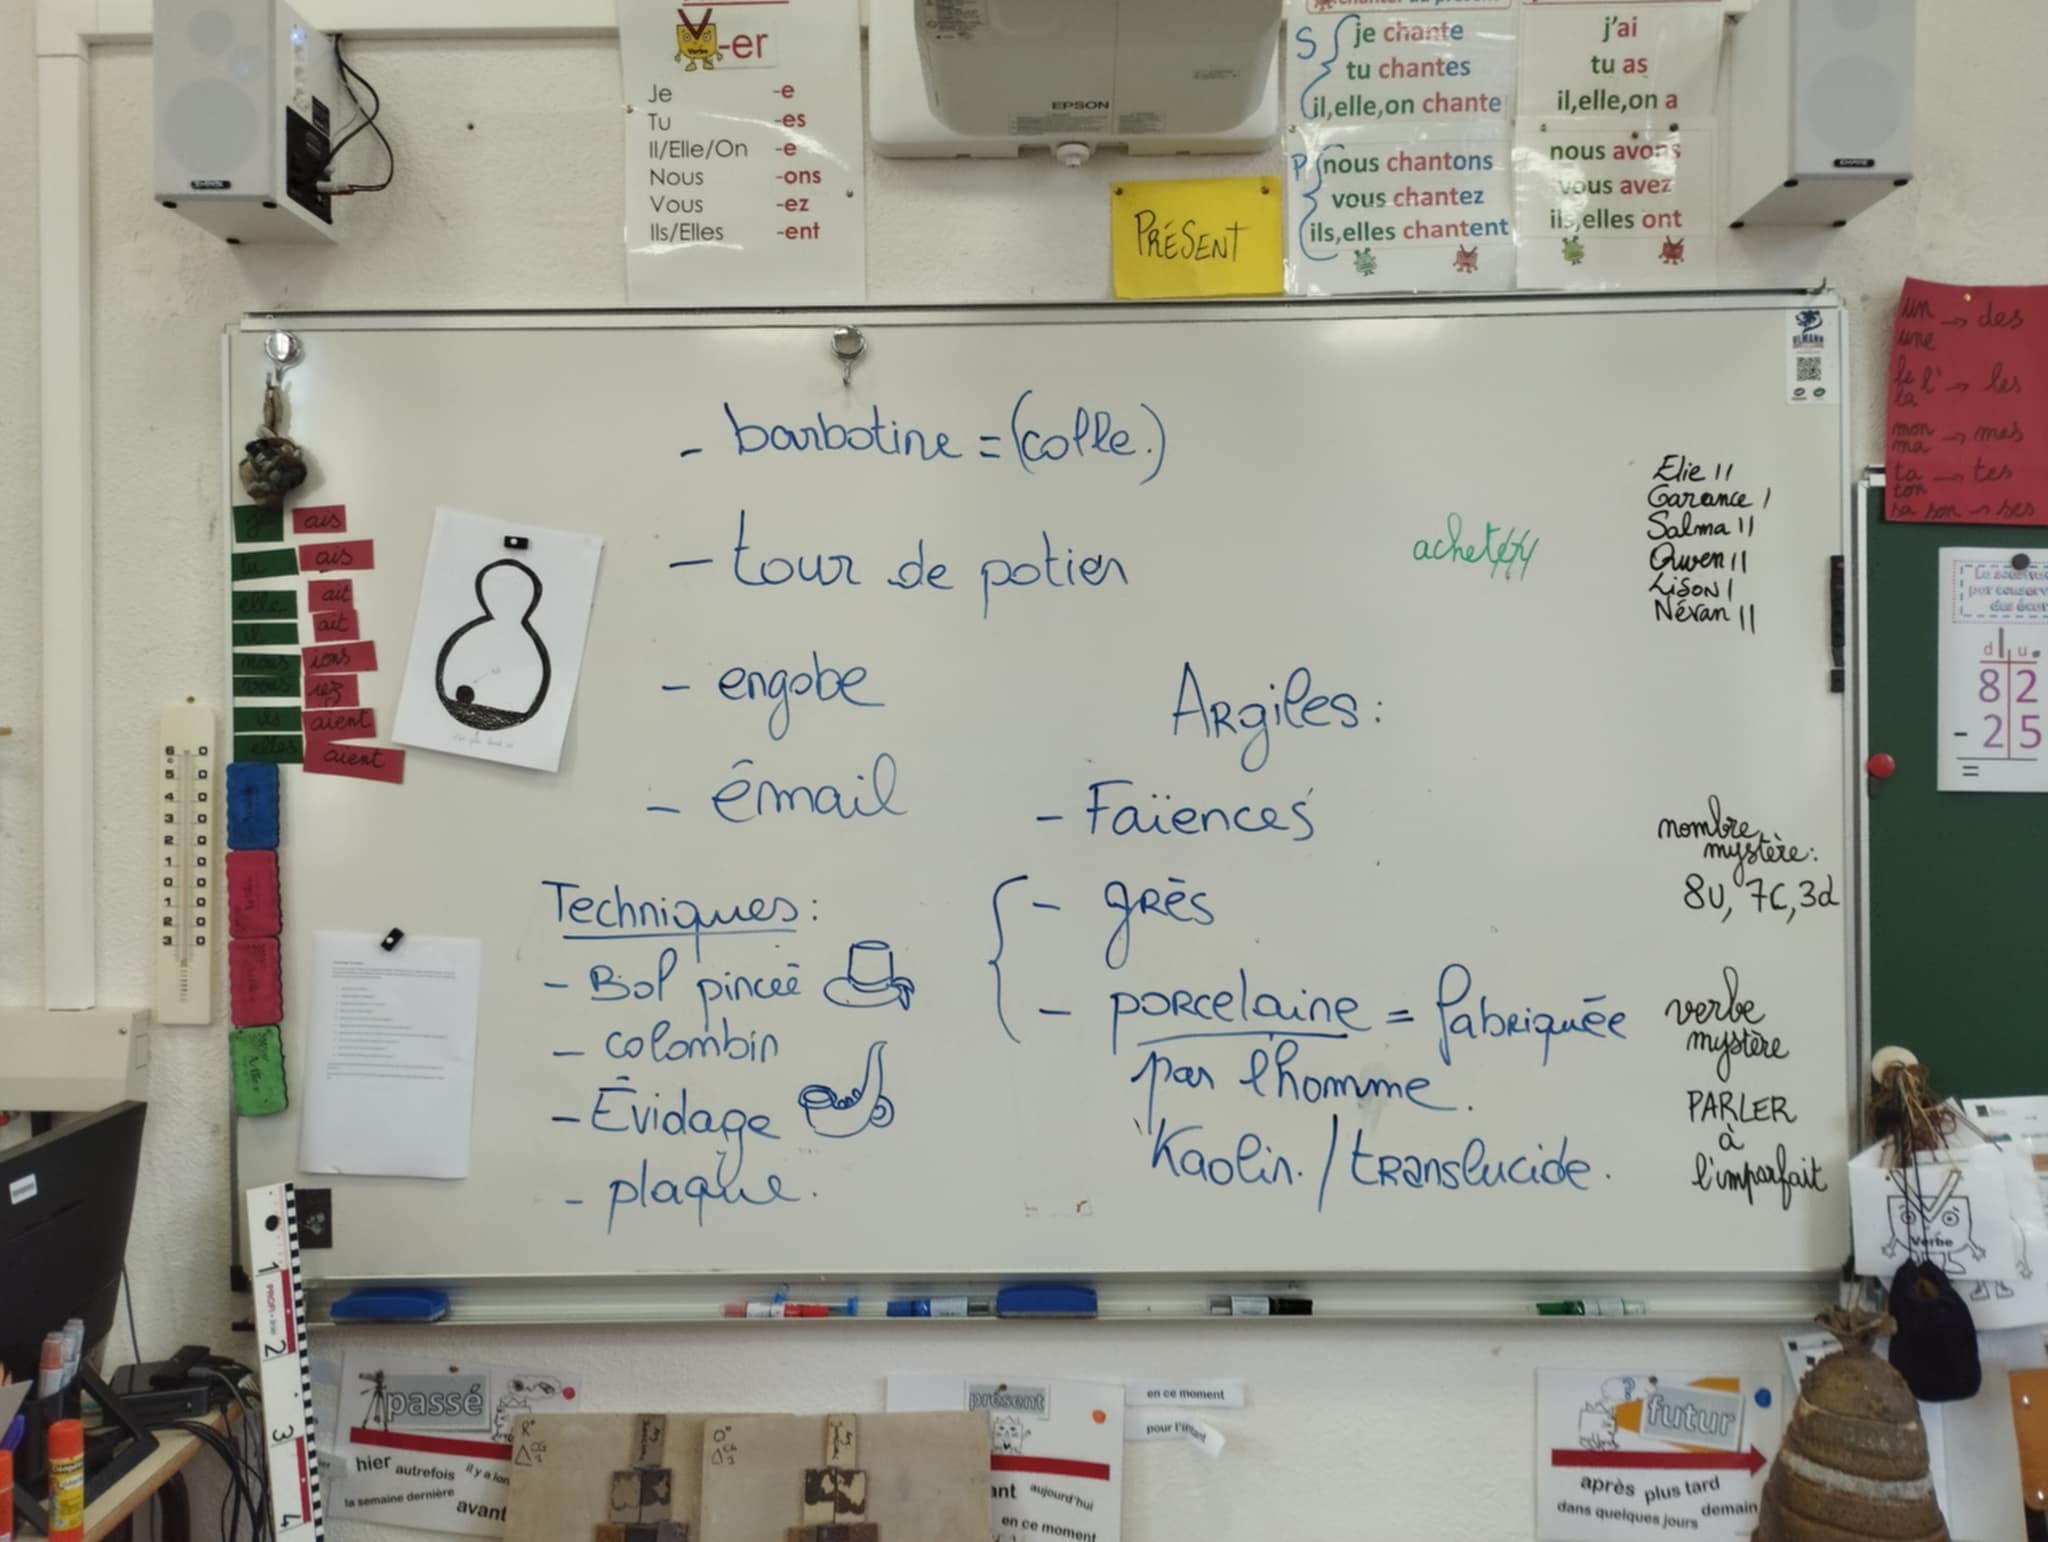 -er
Je -e
Tu -es
Il/Elle/On -e
Nous -ons
Vous -ez
Ils/Elles -ent
EPSON
PRÉSENT
S
je chante
tu chantes
il,elle,on chante
P
nous chantons
vous chantez
ils,elles chantent
j'ai
tu as
il,elle,on a
nous avons
vous avez
ils,elles ont
un → des
une
le l' → les
la
mon → mes
ma
ta → tes
ton
sa son → ses
ULMANN
- barbotine = (colle.)
- tour de potier
- engobe
- émail
Techniques :
- Bol pincéé
- colombin
- Évidage
- plaque.
Argiles :
- Faïences
- grès
- porcelaine = fabriquée
par l'homme.
Kaolin. / translucide.
Elie II
Garance I
Salma II
Owen II
Lison I
Névan II
nombre
mystère :
8U, 7C, 3d
verbe
mystère
PARLER
à
l'imparfait
je ais
tu ais
elle ait
il ait
nous ions
vous iez
ils aient
elles aient
d u
82
- 25
=
Verbe
1
2
3
4
passé
hier autrefois il y a lon
la semaine dernière avant
présent
en ce moment
pour l'instant
aujourd'hui
en ce moment
futur
après plus tard
dans quelques jours demain